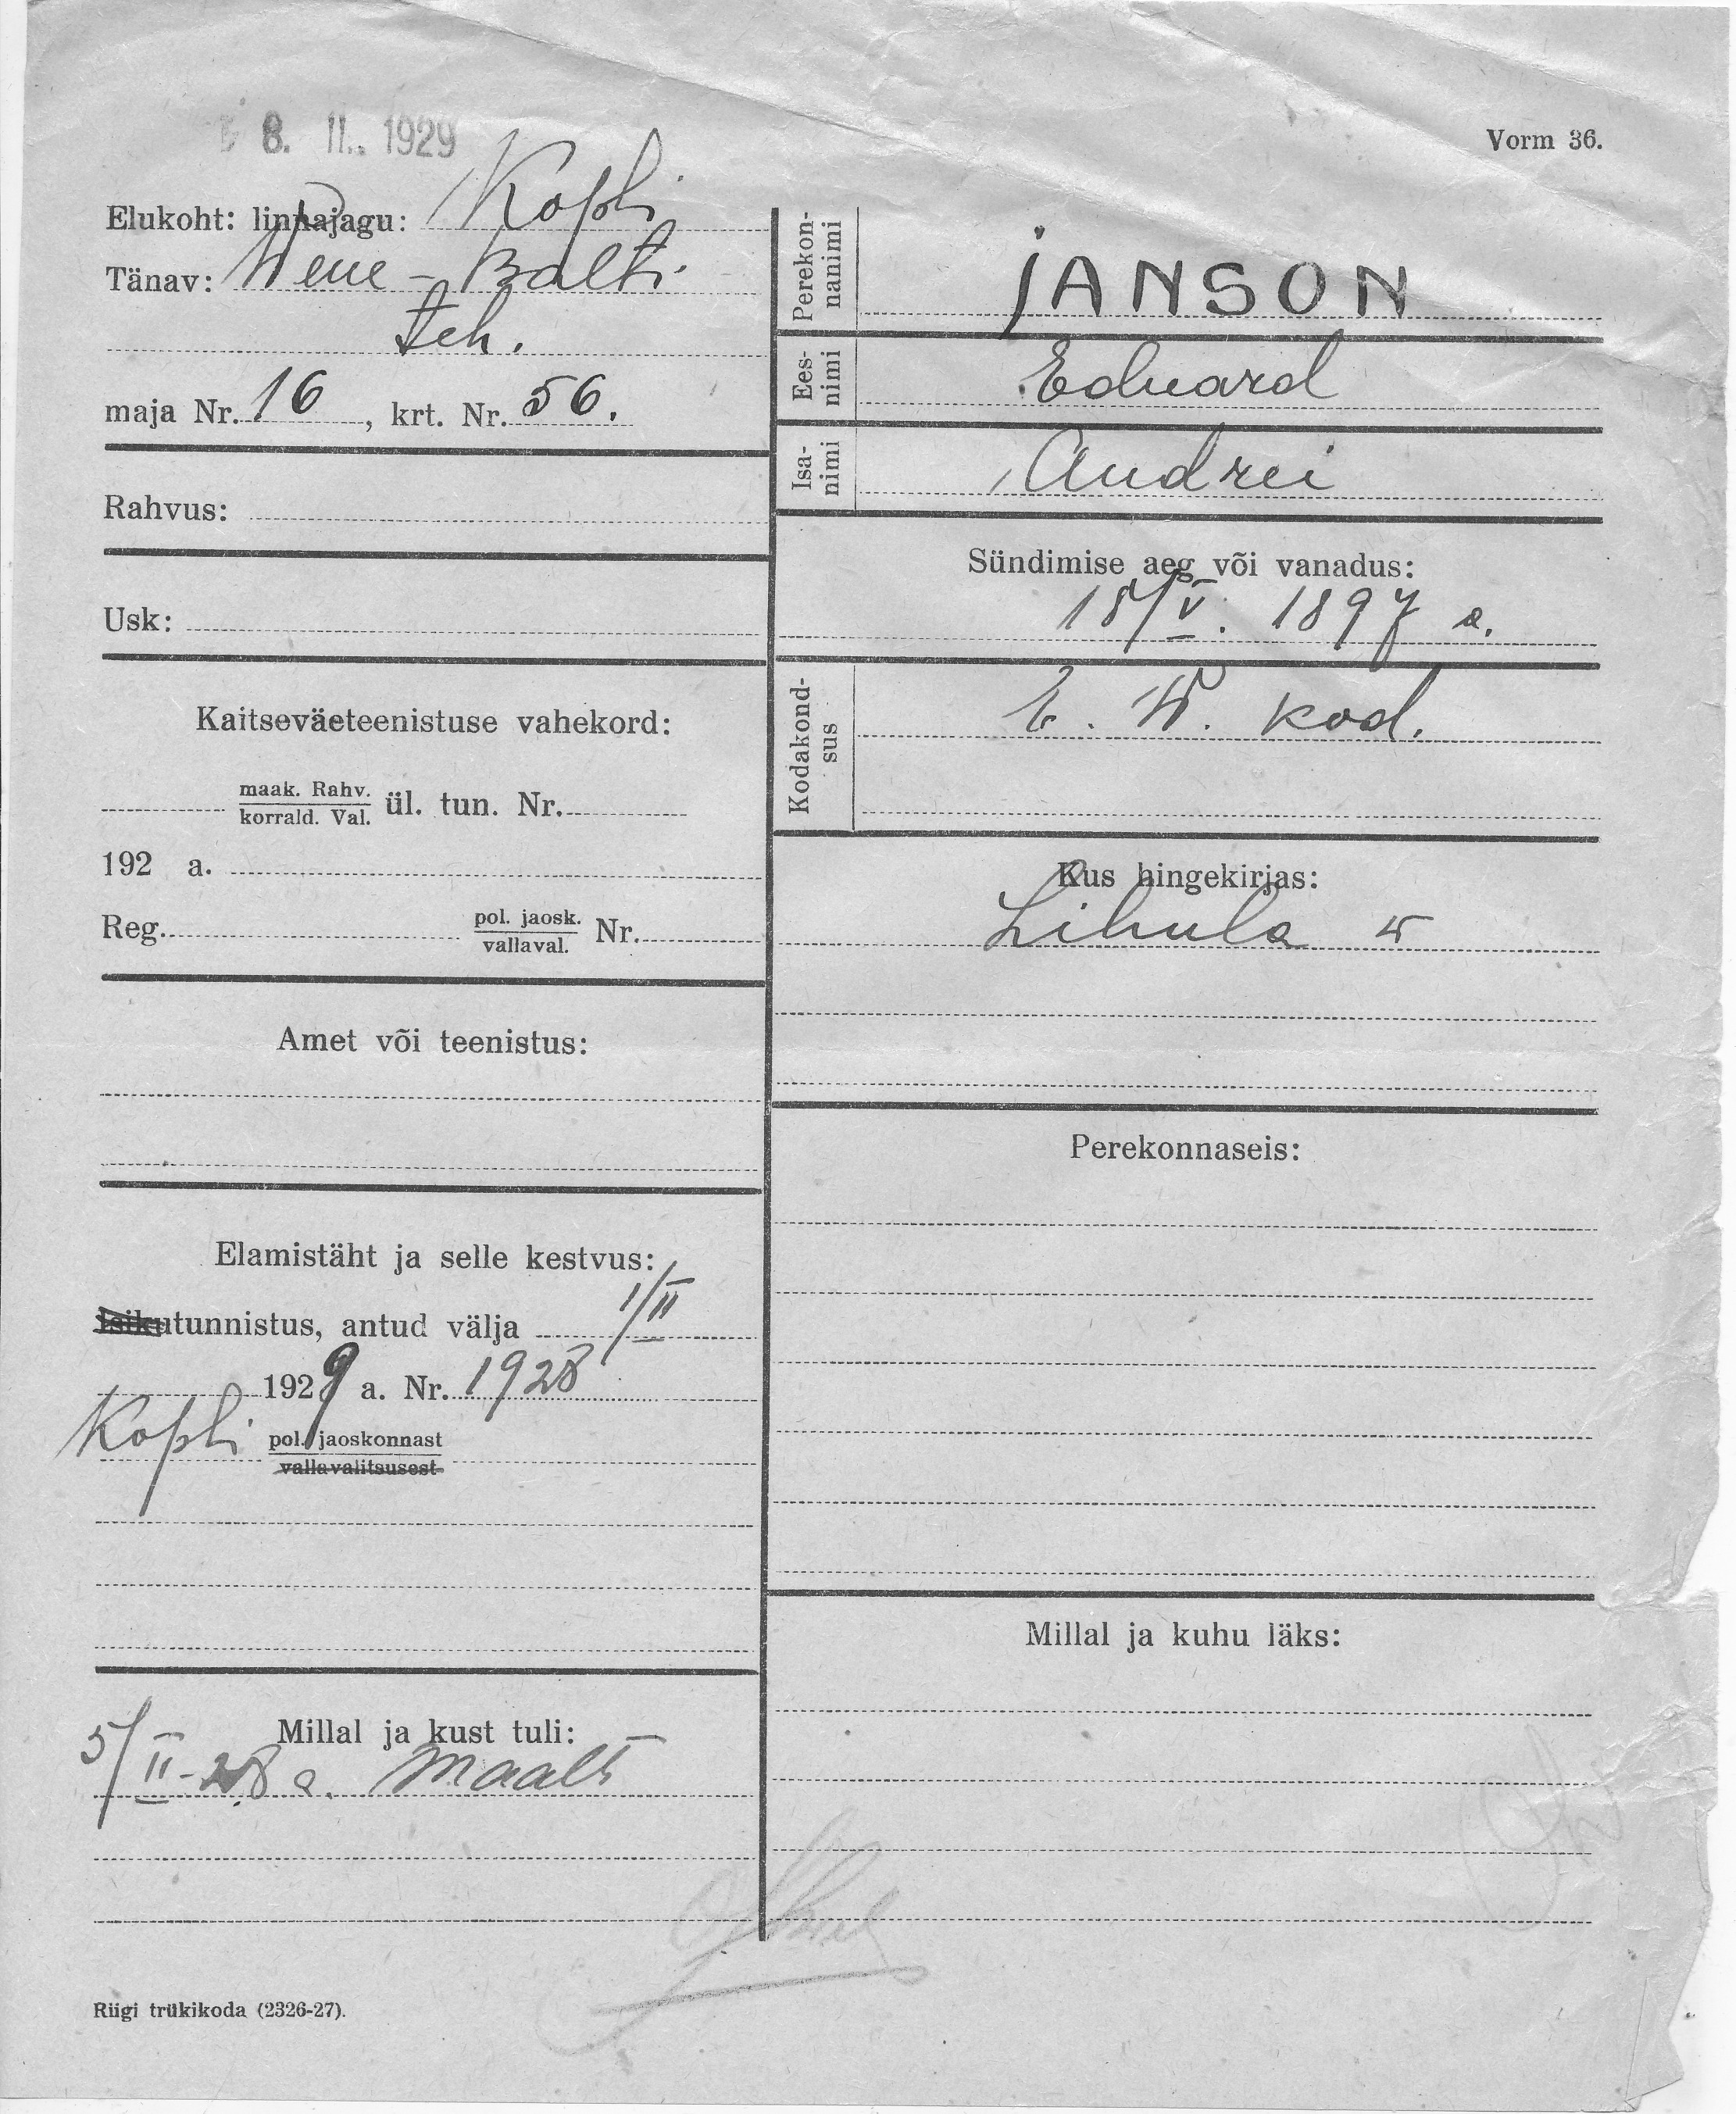 8. II. 1929
Vorm 36.
Elukoht: linnajagu: Kopli
Tänav: Wene-Balti
teh.
maja Nr. 16, krt. Nr. 56.
Rahvus:
Usk:
Kaitseväeteenistuse vahekord:
maak. Rahv.
korrald. Val.
ül. tun. Nr.
192 a.
Reg. pol. jaosk.
vallaval. Nr.
Amet või teenistus:
Elamistäht ja selle kestvus:
Isikutunnistus, antud välja 1/II
1929 a. Nr. 1928
Kopli pol. jaoskonnast
vallavalitsusest
Millal ja kust tuli:
5/II-28 a. Maalt
Riigi trükikoda (2326-27).
Perekon-
nanimi
JANSON
Ees-
nimi
Eduard
Isa-
nimi
Andrei
Sündimise aeg või vanadus:
18/V. 1897 a.
Kodakond-
sus
E. W. kod.
Kus hingekirjas:
Lihula w
Perekonnaseis:
Millal ja kuhu läks: